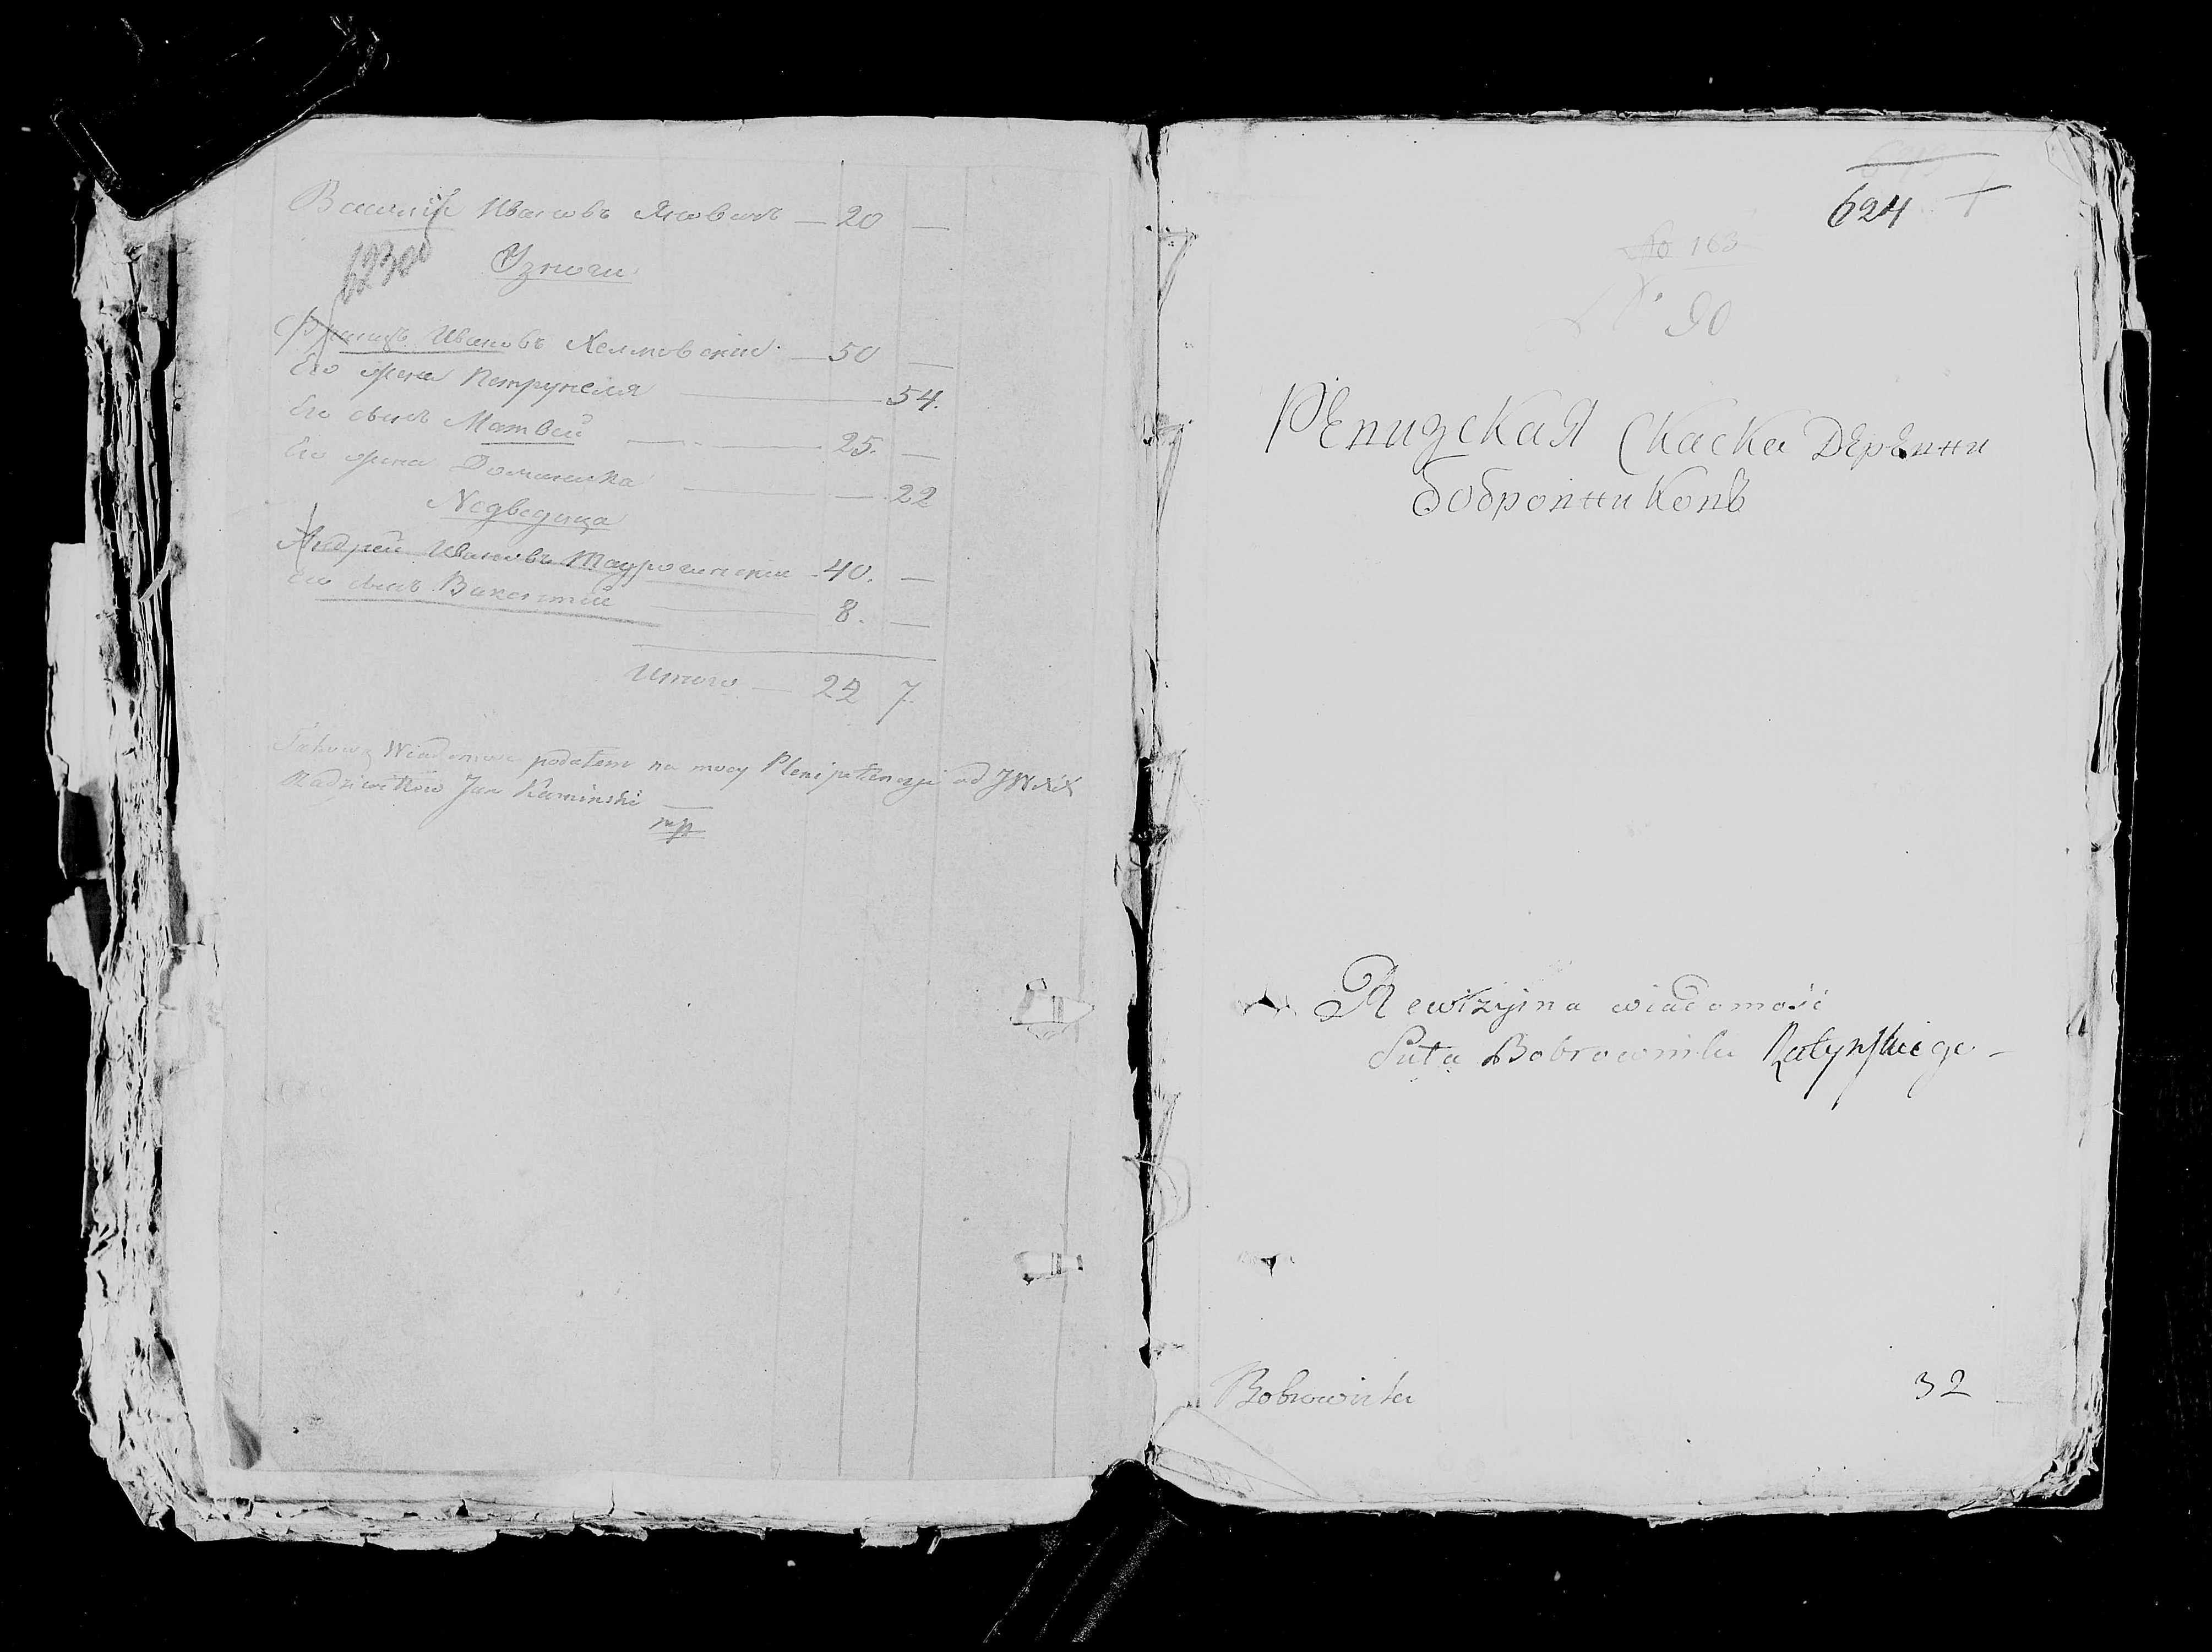 Василій Ивановъ Яновичъ — 20 —
623об
Узноги
Францъ Ивановъ Хелмовскій — 50 —
Его жена Петрунеля — 54.
Его сынъ Матвей — 25. —
Его жена Доминика — 22
Недведица
Андрей Ивановъ — 40. —
Его сынъ Викентій — 8. —
Итого — 22 7.
Takową Wiadomosc podałem na mocy Plenipotencyi od JW XX
Radziwiłłow Jan Kaminski —
mp
624
No 163
No 90
Репизская Скаска Дерепни
бобропникопъ
Rewizyina wiadomość
Bobrownika Ratynskiego —
32